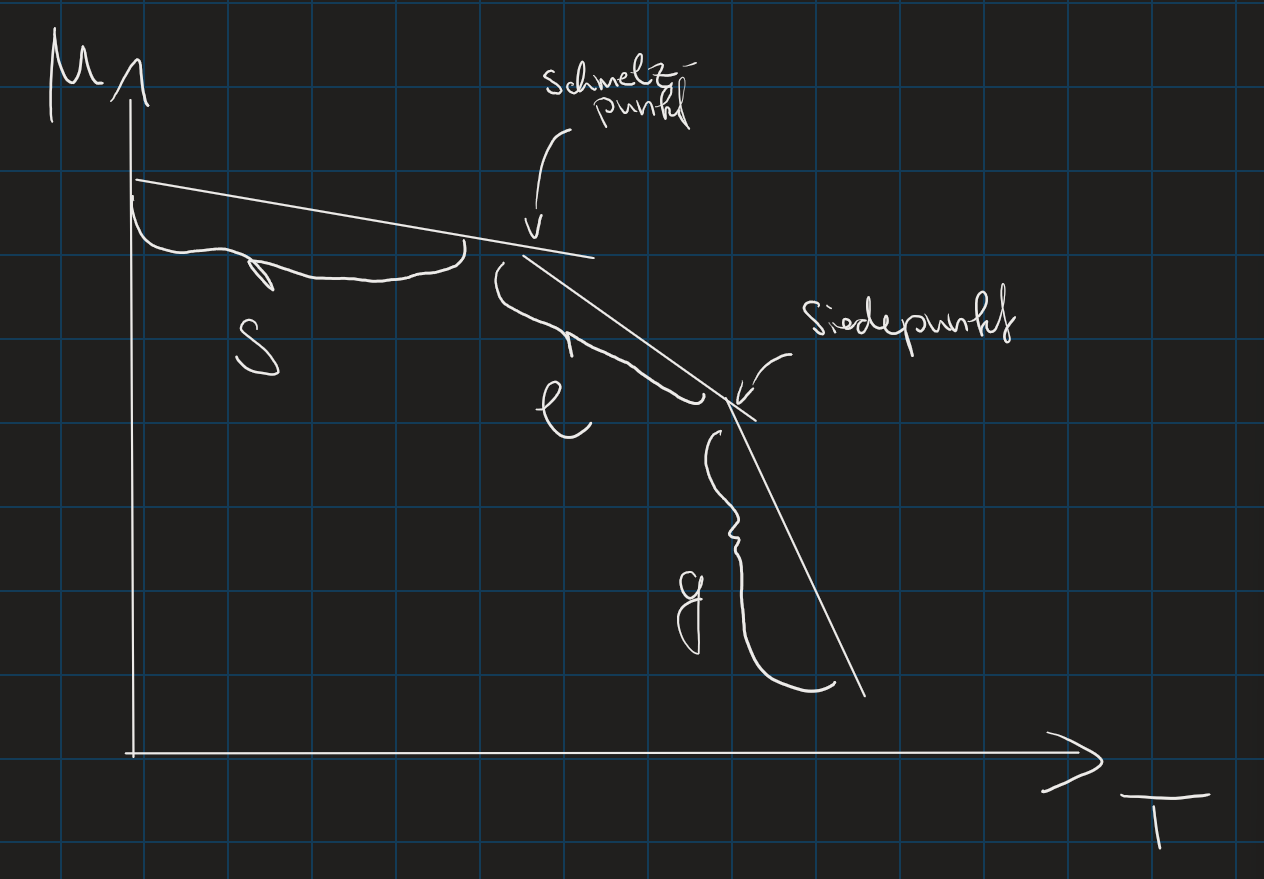 μ
Schmelz-
punkt
Siedepunkt
S
l
g
T